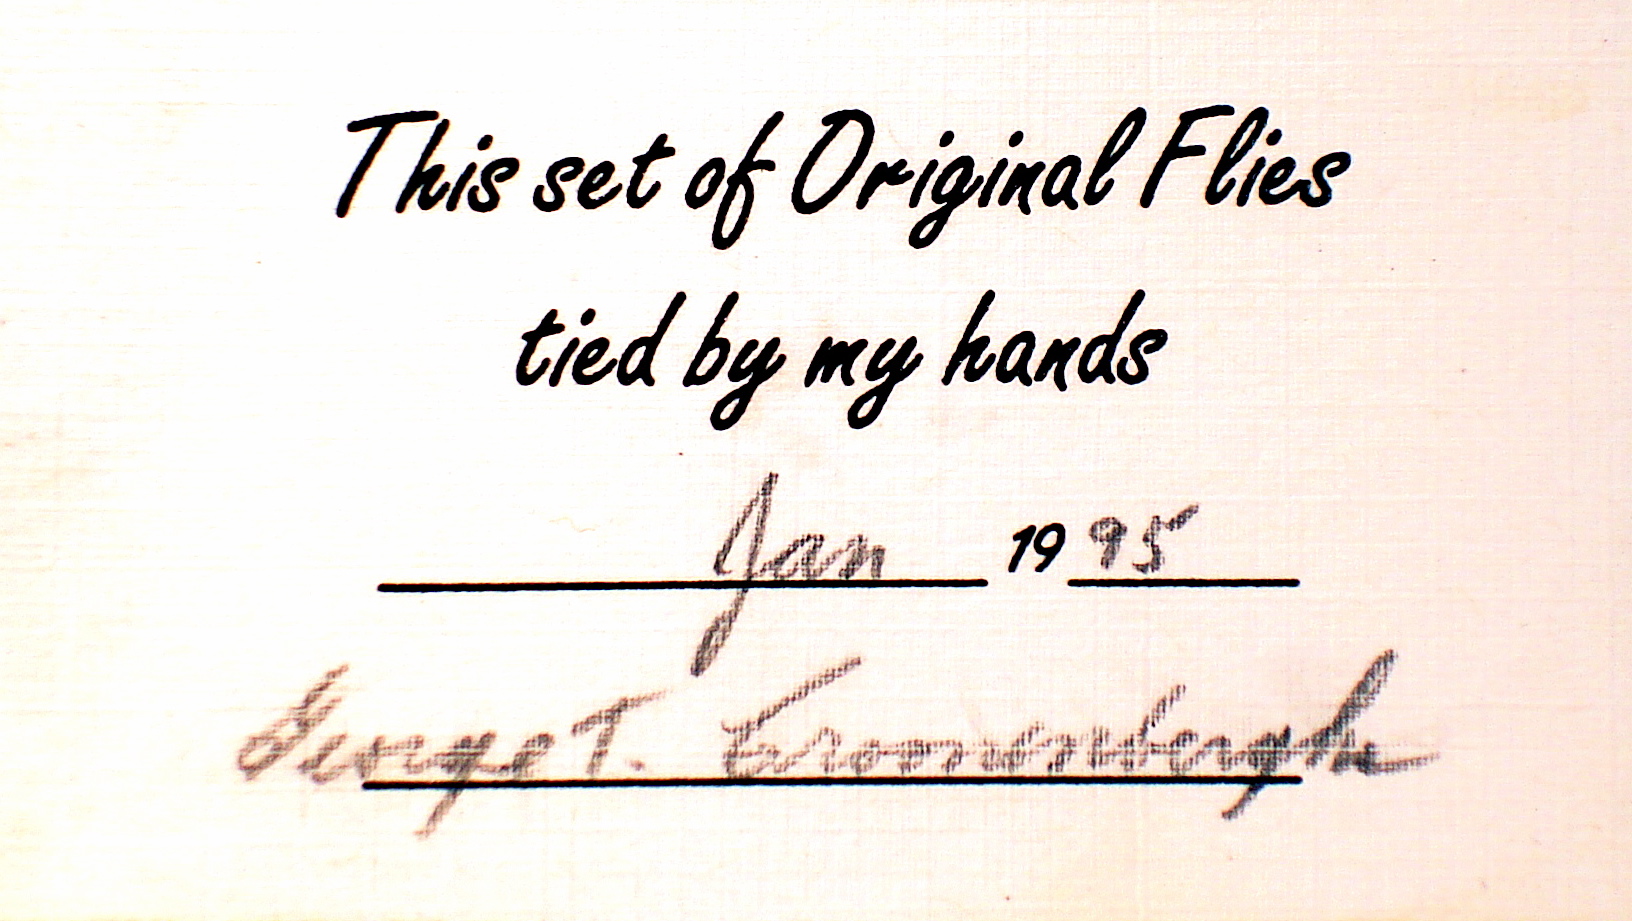 This set of Original Flies
tied by my hands
Jan 1995
George T.